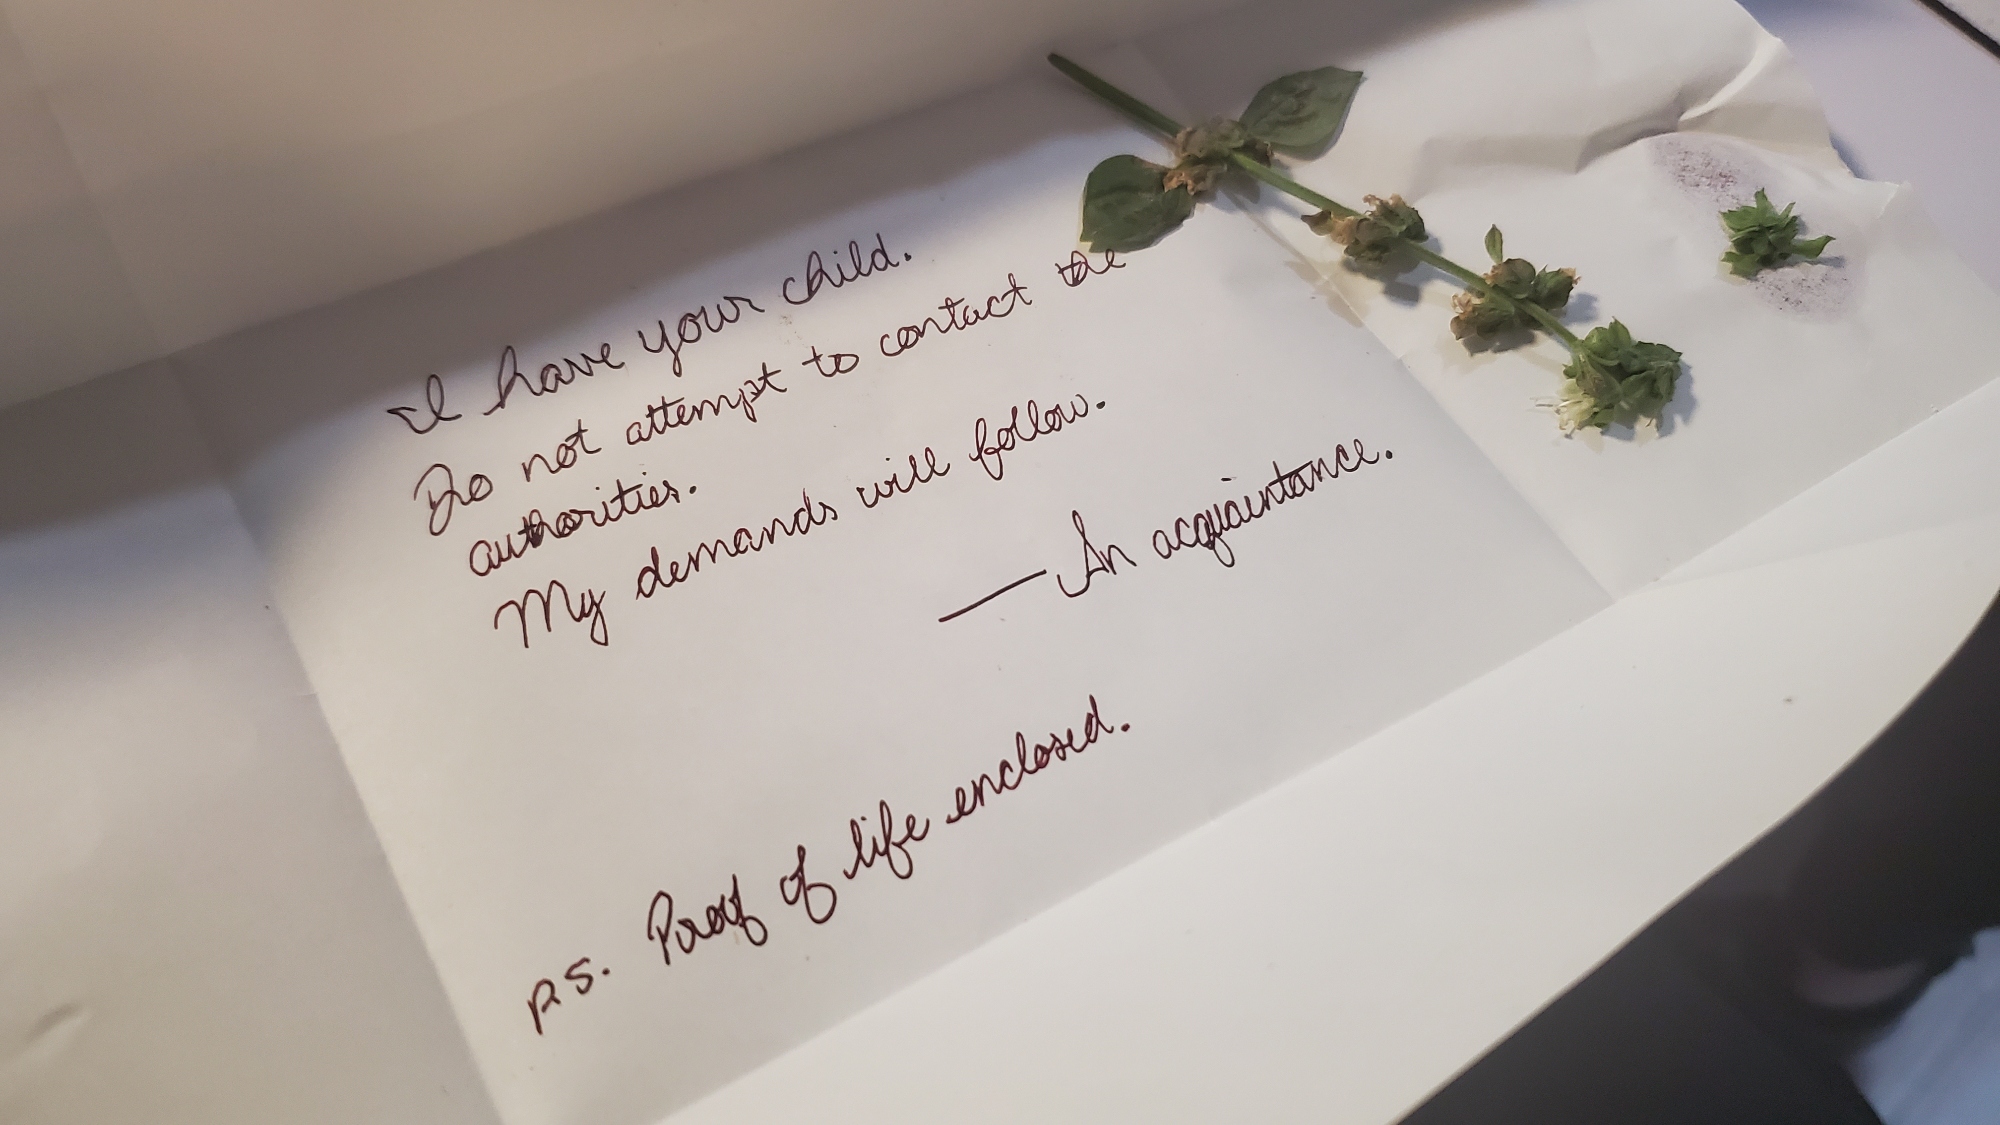 I have your child.
Do not attempt to contact the
authorities.
My demands will follow.
— An acquaintance.
P.S. Proof of life enclosed.